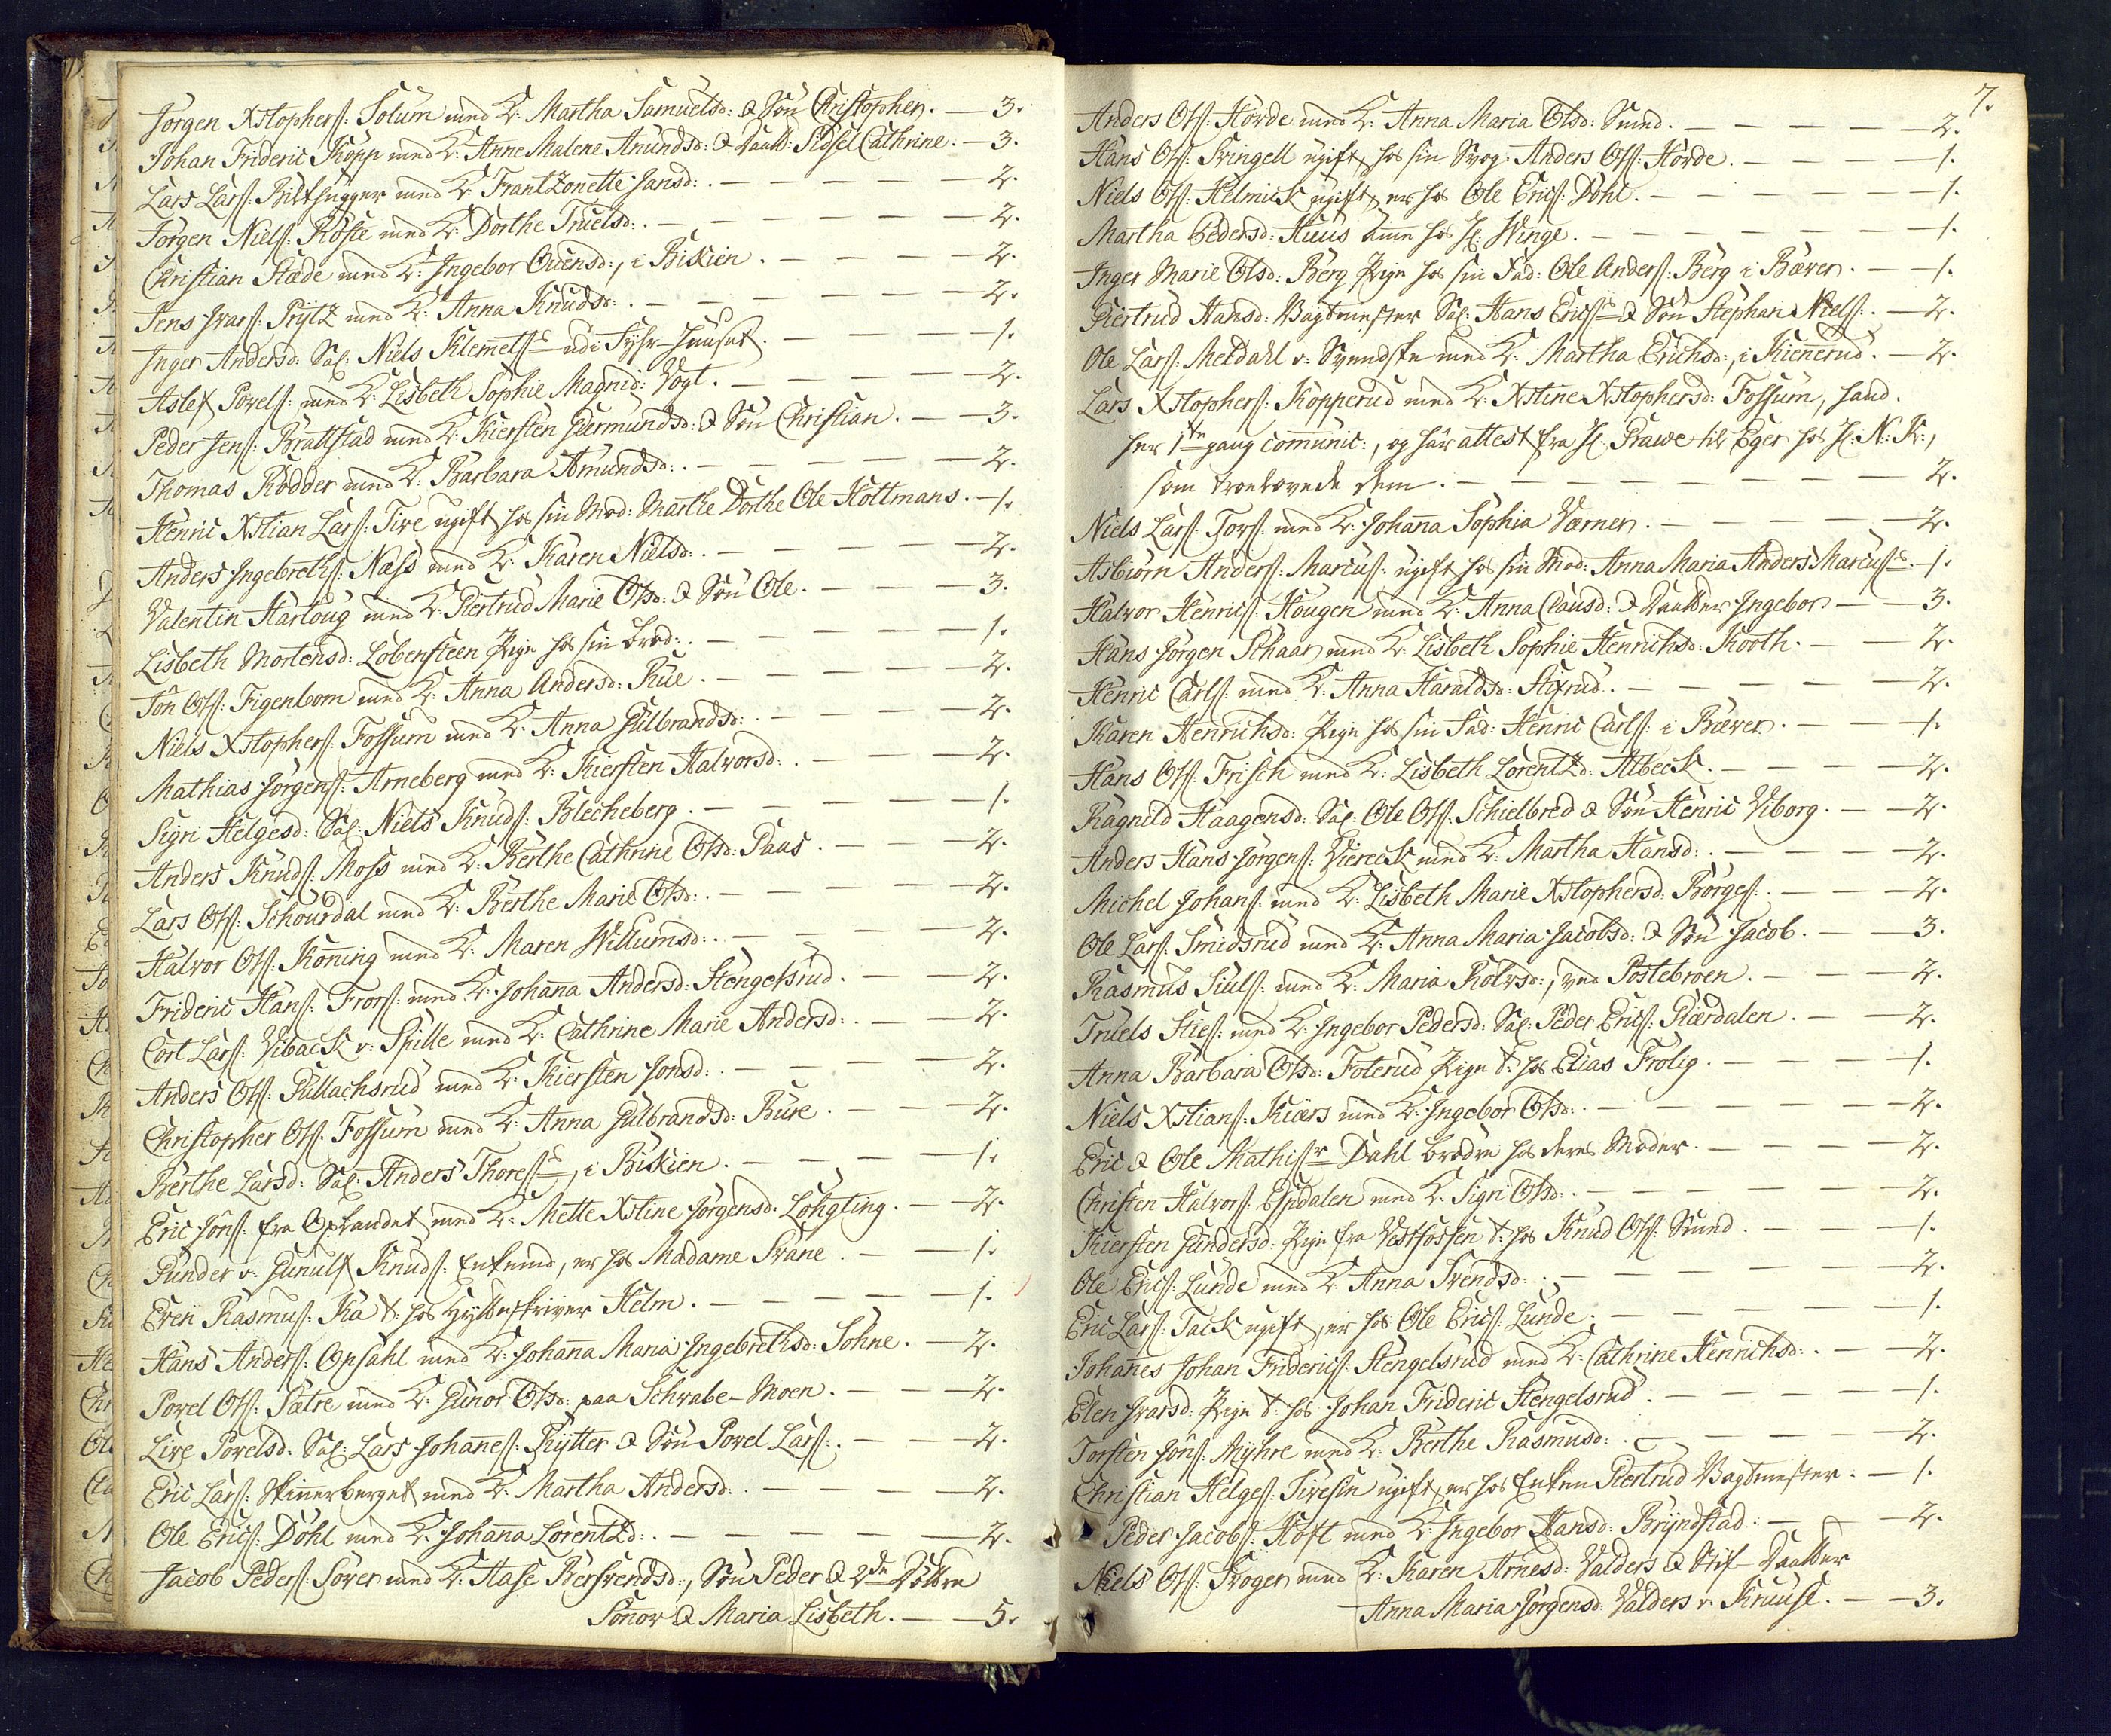 Jørgen Xstophers: Solum med K: Martha Samuelsd: & Søn Christopher. — 3.
Johan Frideric Kopp med K: Anne Malene Amundsd: & Daatt: Sidsel Cathrine. — 3.
Lars Lars: Bilthugger med K: Frantzonette Jansd: — 2.
Jørgen Niels: Røste med K: Dorthe Truelsd: — 2.
Christian Stade med K: Ingebor Ouensd:, i Bisxien. — 2.
Jens Ivars: Prÿtz med K: Anna Knudsd: — 2.
Inger Andersd: Sal: Niels Klemmets: udi Huuset. — 1.
Aslef Povels: med K: Lisbeth Sophie Magnid: Vogt. — 2.
Peder Jens: Brattstad med K: Kiersten Germundsd: & Søn Christian. — 3.
Thomas Rødder med K: Barbara Amundsd: — 2.
Henric Xstian Lars: Tire ugift hos sin Mod: Marthe Dorthe Ole Holtmans. — 1.
Anders Ingebreths: Næss med K: Karen Nielsd: — 2.
Valentin Hartoug med K: Giertrud Marie Olsd: & Søn Ole. — 3.
Lisbeth Mortensd: Lobensteen Pige hos sin Brod: — 1.
Jôn Ols: Figenbom med K: Anna Andersd: Rue. — 2.
Niels Xstophers: Fossum med K: Anna Gulbrandsd: — 2.
Mathias Jørgens: Arneberg med K: Kiersten Halvorsd: — 2.
Sigri Helgesd: Sal: Niels Knuds: Blecheberg. — 1.
Anders Knuds: Moss med K: Berthe Cathrine Olsd: Paas. — 2.
Lars Ols: Schourdal med K: Berthe Marie Olsd: — 2.
Halvor Ols: Kønning med K: Maren Willumsd: — 2.
Frideric Hans: Frors: med K: Johanna Andersd: Stengelsrud. — 2.
Cort Lars: Vibaeck v: Spille med K: Cathrine Marie Andersd: — 2.
Anders Ols: Gullachsrud med K: Kiersten Jonsd: — 2.
Christopher Ols: Fossum med K: Anna Gulbrandsd: Bure. — 2.
Berthe Larsd: Sal: Anders Thores:, i Bisxien. — 1.
Eric Jôns: fra Oplandet med K: Mette Xstine Jørgensd: Løhgting. — 2.
Gunder v: Gunulf Knuds: Enkemd, er hos Madame Svane. — 1.
Even Rasmus: Ka t: hos Hytteskriver Helm. — 1.
Hans Anders: Opsahl med K: Johanna Maria Ingebrethsd: Sohne. — 2.
Povel Ols: Sætre med K: Gunor Olsd: paa Schwabe-Moen. — 2.
Live Povelsd: Sal: Lars Johannes: Rÿtter & Søn Povel Lars: — 2.
Eric Lars: Skinnerberget med K: Martha Andersd: — 2.
Ole Erics: Dohl med K: Johanna Lorentzd: — 2.
Jacob Peders: Sover med K: Aase Bersvendsd:, Søn Peder & 2de Døttre
Sønnov & Maria Lisbeth. — 5.
7.
Anders Ols: Hørde med K: Anna Maria Olsd: Smed. — 2.
Hans Ols: Svingell ugift, hos sin Svog: Anders Ols: Hørde. — 1.
Niels Ols: Helmick ugift, er hos Ole Erics: Dohl. — 1.
Martha Pedersd: Huus Amme hos H: Winge. — 1.
Inger Marie Olsd: Berg Pige hos sin Fad: Ole Anders: Berg i Bæver. — 1.
Giertrud Hansd: Vagtmester Sal: Hans Erics: & Søn Stephan Niels: — 2.
Ole Lars: Meldahl v: Svendske med K: Martha Erichsd:, i Kiennerud. — 2.
Lars Xstophers: Kopperud med K: Xstine Xstophersd: Fossum, hand
her 1te gang communic:, og har attest fra H: Prawe til Eger hos H: N: K:,
som trovede dem. — 2.
Niels Lars: Tors: med K: Johanna Sophia Værner. — 2.
Asbiørn Anders: Marcus: ugift hos sin Mod: Anna Maria Anders Marcus: — 1.
Halvor Henrics: Hougen med K: Anna Clausd: & Daatter Ingebor. — 3.
Hans Jørgen Schaar med K: Lisbeth Sophie Henrichsd: Kooth. — 2.
Henric Carls: med K: Anna Haraldsd: Stixrud. — 2.
Karen Henrichsd: Pige hos sin Fad: Henric Carls: i Bæver. — 1.
Hans Ols: Frisch med K: Lisbeth Lorentzd: Albeck. — 2.
Ragnild Haagensd: Sal: Ole Ols: Schielbred & Søn Henric Viborg. — 2.
Anders Hans Jørgens: Viereck med K: Martha Hansd: — 2.
Michel Johans: med K: Lisbeth Marie Xstophersd: Børges: — 2.
Ole Lars: Smidsrud med K: Anna Maria Jacobsd: & Søn Jacob. — 3.
Rasmus Siuls: med K: Maria Rolvsd:, ved Postebroen. — 2.
Truels Sties: med K: Ingebor Pedersd: Sal: Peder Erics: Kiærdalen. — 2.
Anna Barbara Olsd: Foterud Pige t: hos Elias Frolig. — 1.
Niels Xstians: Kiærs med K: Ingebor Olsd: — 2.
Eric & Ole Mathiss Dahl brødre hos deres Moder. — 2.
Christen Halvors: Espdalen med K: Sigri Olsd: — 2.
Kiersten Gundersd: Pige fra Vestfossen t: hos Knud Ols: Sund. — 1.
Ole Erics: Lunde med K: Anna Svendsd: — 2.
Eric Lars: Tack ugift, er hos Ole Erics: Lunde. — 1.
Johannes Johan Friderics: Stengelsrud med K: Cathrine Henrichsd: — 2.
Elen Ivarsd: Pige t: hos Johan Frideric Stengelsrud. — 1.
Torsten Jôns: Mÿhre med K: Berthe Rasmusd: — 2.
Christian Helges: Tivesin ugift, er hos Enken Giertrud Vagtmester. — 1.
Peder Jacobs: Høft med K: Ingebor Hansd: Brÿndstad. — 2.
Niels Ols: Froger med K: Karen Arnesd: Valders & Stif-Daatter
Anna Maria Jørgensd: Valders v: Knuust. — 3.